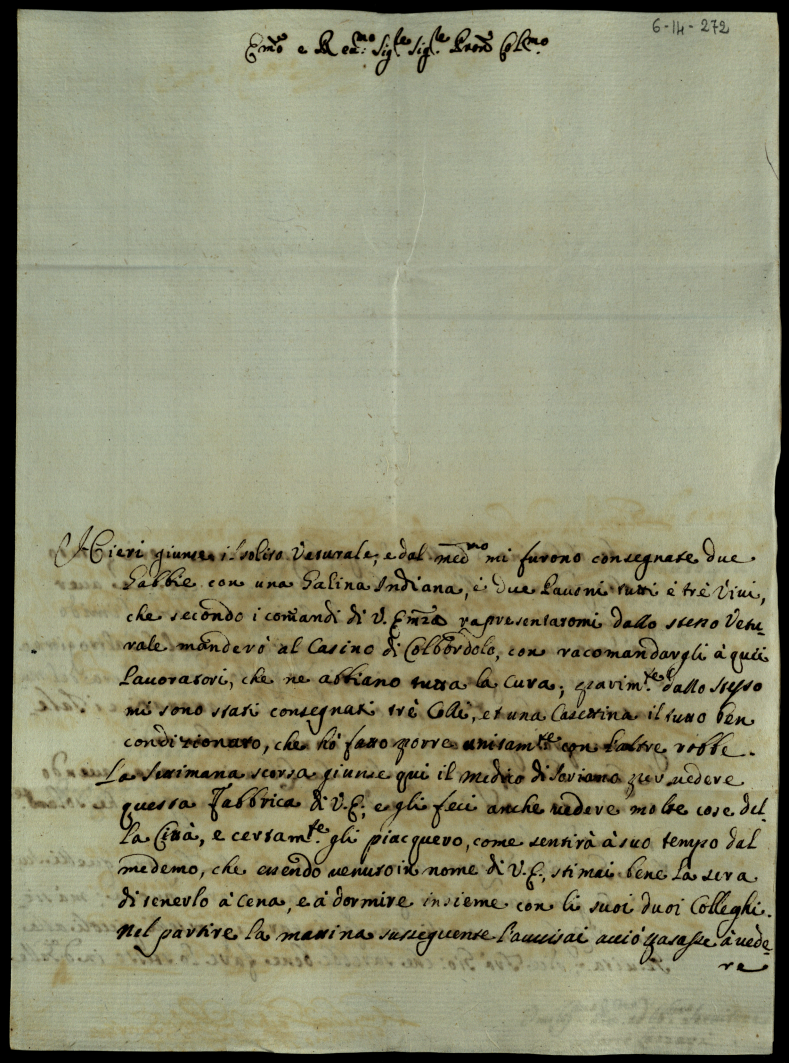 6-14-272
Em̃o e Red:mo Sig.re Sig.re Pron̄ Col.mo
Hieri giunse il solito Veturale, e dal med.mo mi furono consegnate due
Gabbie con una Galina Indiana, e due Pavoni tutti e trè Vivi,
che secondo i comandi di V. Em̃za rapresentatomi dallo stesso Vetu-
rale manderò al Casino di Colbordolo, con racomandargli à quei
Lavoratori, che ne abbiano tutta la cura; parim.te dallo stesso
mi sono stati consegnati trè Colli, et una Casettina il tutto ben
condizionato, che hò fatto porre unitam.te con l'altre robbe.
La Settimana scorsa giunse qui il medico di Soriano per vedere
questa Fabbrica di V.E; e gli feci anche vedere molte cose del-
la Città, e certam.te gli piacquero, come sentirà à suo tempo dal
medemo, che essendo venuto in nome di V.E, stimai bene la sera
di tenerlo à cena, e à dormire insieme con li suoi duoi Colleghi.
Nel partire la mattina susseguente l'avvisai acciò passasse à vede-
re